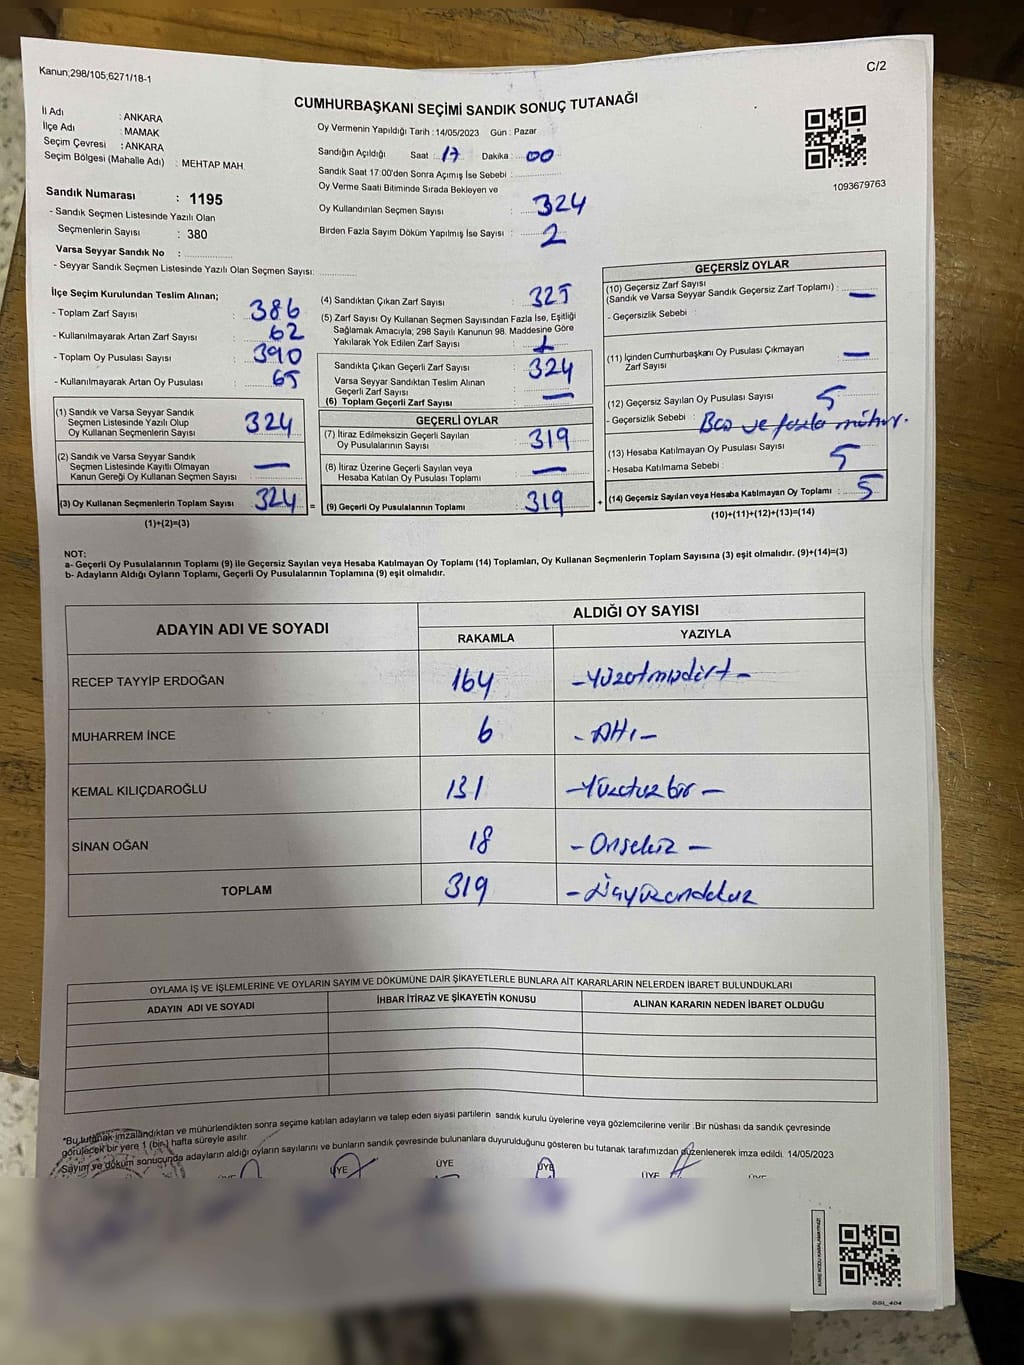 Kanun,298/105,6271/18-1
C/2
CUMHURBAŞKANI SEÇİMİ SANDIK SONUÇ TUTANAĞI
İl Adı : ANKARA
İlçe Adı : MAMAK
Seçim Çevresi : ANKARA
Seçim Bölgesi (Mahalle Adı) : MEHTAP MAH.
Sandık Numarası : 1195
- Sandık Seçmen Listesinde Yazılı Olan
Seçmenlerin Sayısı : 380
Varsa Seyyar Sandık No :
- Seyyar Sandık Seçmen Listesinde Yazılı Olan Seçmen Sayısı:
Oy Vermenin Yapıldığı Tarih : 14/05/2023 Gün : Pazar
Sandığın Açıldığı Saat : 17 Dakika : 00
Sandık Saat 17:00'den Sonra Açımış İse Sebebi :
Oy Verme Saati Bitiminde Sırada Bekleyen ve
Oy Kullandırılan Seçmen Sayısı : 324
Birden Fazla Sayım Döküm Yapılmış İse Sayısı : 2
1093679763
İlçe Seçim Kurulundan Teslim Alınan;
- Toplam Zarf Sayısı : 386
- Kullanılmayarak Artan Zarf Sayısı : 62
- Toplam Oy Pusulası Sayısı : 390
- Kullanılmayarak Artan Oy Pusulası : 65
(1) Sandık ve Varsa Seyyar Sandık
Seçmen Listesinde Yazılı Olup
Oy Kullanan Seçmenlerin Sayısı : 324
(2) Sandık ve Varsa Seyyar Sandık
Seçmen Listesinde Kayıtlı Olmayan
Kanun Gereği Oy Kullanan Seçmen Sayısı : —
(3) Oy Kullanan Seçmenlerin Toplam Sayısı : 324 =
(1)+(2)=(3)
(4) Sandıktan Çıkan Zarf Sayısı : 325
(5) Zarf Sayısı Oy Kullanan Seçmen Sayısından Fazla İse, Eşitliği
Sağlamak Amacıyla; 298 Sayılı Kanunun 98. Maddesine Göre
Yakılarak Yok Edilen Zarf Sayısı : 1
Sandıkta Çıkan Geçerli Zarf Sayısı : 324
Varsa Seyyar Sandıktan Teslim Alınan
Geçerli Zarf Sayısı : —
(6) Toplam Geçerli Zarf Sayısı :
GEÇERLİ OYLAR
(7) İtiraz Edilmeksizin Geçerli Sayılan
Oy Pusulalarının Sayısı : 319
(8) İtiraz Üzerine Geçerli Sayılan veya
Hesaba Katılan Oy Pusulası Toplamı : —
(9) Geçerli Oy Pusulalarının Toplamı : 319 +
GEÇERSİZ OYLAR
(10) Geçersiz Zarf Sayısı
(Sandık ve Varsa Seyyar Sandık Geçersiz Zarf Toplamı) : —
- Geçersizlik Sebebi :
(11) İçinden Cumhurbaşkanı Oy Pusulası Çıkmayan
Zarf Sayısı : —
(12) Geçersiz Sayılan Oy Pusulası Sayısı : 5
- Geçersizlik Sebebi : Boş ve fazla mühür.
(13) Hesaba Katılmayan Oy Pusulası Sayısı : 5
- Hesaba Katılmama Sebebi :
(14) Geçersiz Sayılan veya Hesaba Katılmayan Oy Toplamı : 5
(10)+(11)+(12)+(13)=(14)
NOT:
a- Geçerli Oy Pusulalarının Toplamı (9) ile Geçersiz Sayılan veya Hesaba Katılmayan Oy Toplamı (14) Toplamları, Oy Kullanan Seçmenlerin Toplam Sayısına (3) eşit olmalıdır. (9)+(14)=(3)
b- Adayların Aldığı Oyların Toplamı, Geçerli Oy Pusulalarının Toplamına (9) eşit olmalıdır.
ADAYIN ADI VE SOYADI ALDIĞI OY SAYISI
RAKAMLA YAZIYLA
RECEP TAYYİP ERDOĞAN 164 -Yüzatmışdört-
MUHARREM İNCE 6 -Altı-
KEMAL KILIÇDAROĞLU 131 -Yüzotuzbir-
SİNAN OĞAN 18 -Onsekiz-
TOPLAM 319 -Üçyüzondokuz
OYLAMA İŞ VE İŞLEMLERİNE VE OYLARIN SAYIM VE DÖKÜMÜNE DAİR ŞİKAYETLERLE BUNLARA AİT KARARLARIN NELERDEN İBARET BULUNDUKLARI
ADAYIN ADI VE SOYADI İHBAR İTİRAZ VE ŞİKAYETİN KONUSU ALINAN KARARIN NEDEN İBARET OLDUĞU
*Bu tutanak imzalandıktan ve mühürlendikten sonra seçime katılan adayların ve talep eden siyasi partilerin sandık kurulu üyelerine veya gözlemcilerine verilir .Bir nüshası da sandık çevresinde
görülecek bir yere 1 (bir ) hafta süreyle asılır.
Sayım ve döküm sonucunda adayların aldığı oyların sayılarını ve bunların sandık çevresinde bulunanlara duyurulduğunu gösteren bu tutanak tarafımızdan düzenlenerek imza edildi. 14/05/2023
ÜYE ÜYE ÜYE ÜYE ÜYE
KARE KODU KARALAMAYINIZ!
SSI_404